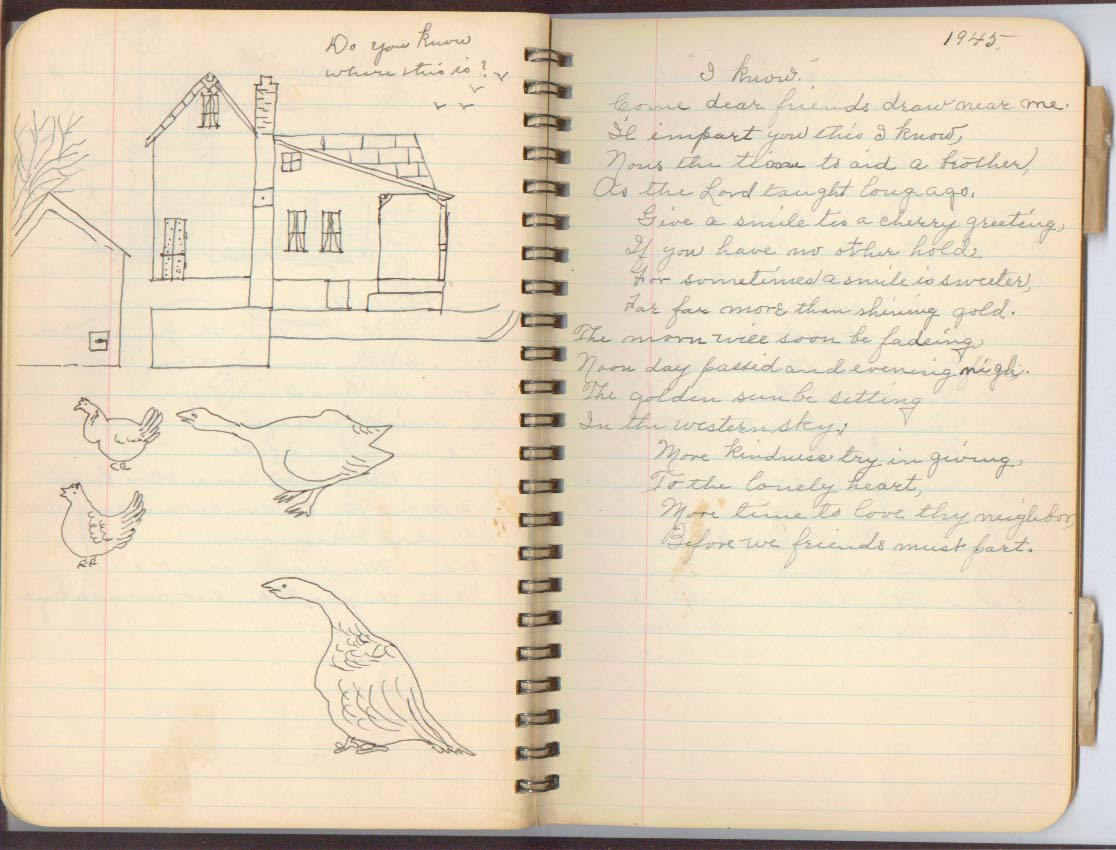 Do you know
where this is?
1945.
"I know."
Come dear friends draw near me.
I'll impart you this I know,
Nows the time to aid a brother,
As the Lord taught long ago.
Give a smile tis a cherry greeting,
If you have no other hold.
For sometimes a smile is sweeter,
Far far more than shining gold.
The morn will soon be fadeing,
Noon day passed and evening nigh.
The golden sun be setting
In the western sky;
More kindness try in giving,
To the lonely heart,
More time to love thy neighbor,
Before we friends must part.